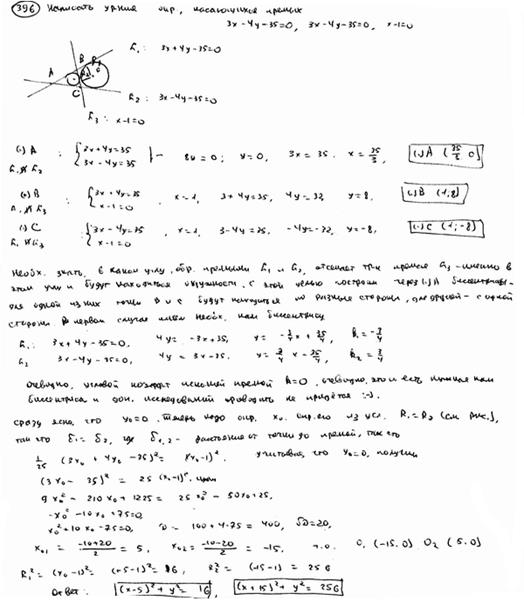 396 Написать ур-ния окр, касающихся прямых
3x-4y-35=0, 3x-4y-35=0, x-1=0
L₁: 3x+4y-35=0
B
A
C
L₂: 3x-4y-35=0
L₃: x-1=0
(·) A : {3x+4y=35 8y=0; y=0, 3x=35. x=35/3, (·)A (35/3 0)
3x-4y=35
(·) B : {3x+4y=35, x=1, 3+4y=35, 4y=32, y=8, (·)B (1;8)
x-1=0
(·) C : {3x-4y=35, x=1, 3-4y=35, -4y=32, y=-8, (·)C (1;-8)
x-1=0
Необх. знать, в каком углу, обр. прямыми L₁ и L₂, отсекает тр-к прямая L₃ - именно в
этом углу и будут находиться окружности. С этой целью построим через (·)A биссектрисы -
для одной из них точки B и C будут находиться по разные стороны, для другой - с одной
стороны. В первом случае имеем необх. нам биссектрису
L₁: 3x+4y-35=0, 4y=-3x+35, y=-3/4 x+35/4, k₁=-3/4
L₂ 3x-4y-35=0, 4y=3x-35. y=3/4 x-35/4, k₂=3/4
очевидно, угловой коэффт искомой прямой k=0. очевидно, это и есть нужная нам
биссектриса и доп. исследований проводить не придётся :-).
Сразу ясно, что y₀=0. Теперь надо опр. x₀. опр. его из усл. R₁=R₂ (см рис.),
так что δ₁=δ₂, где δ₁,₂ - расстояние от точки до прямой, так что
1/25 (3x₀+4y₀-35)²=(x₀-1)². Учитывая, что y₀=0, получим
(3x₀-35)²=25(x₀-1)². или
9x₀²-210x₀+1225=25x₀²-50x₀+25,
-x₀²-10x₀+75=0,
x₀²+10x₀-75=0, D=100+4·75=400, √D=20,
x₀₁=(-10+20)/2=5, x₀₂=(-10-20)/2=-15, т.о. O₁(-15.0) O₂(5.0)
R₁²=(x₀-1)²=(+5-1)²=16, R₂²=(-15-1)=256
Ответ: (x-5)²+y²=16, (x+15)²+y²=256